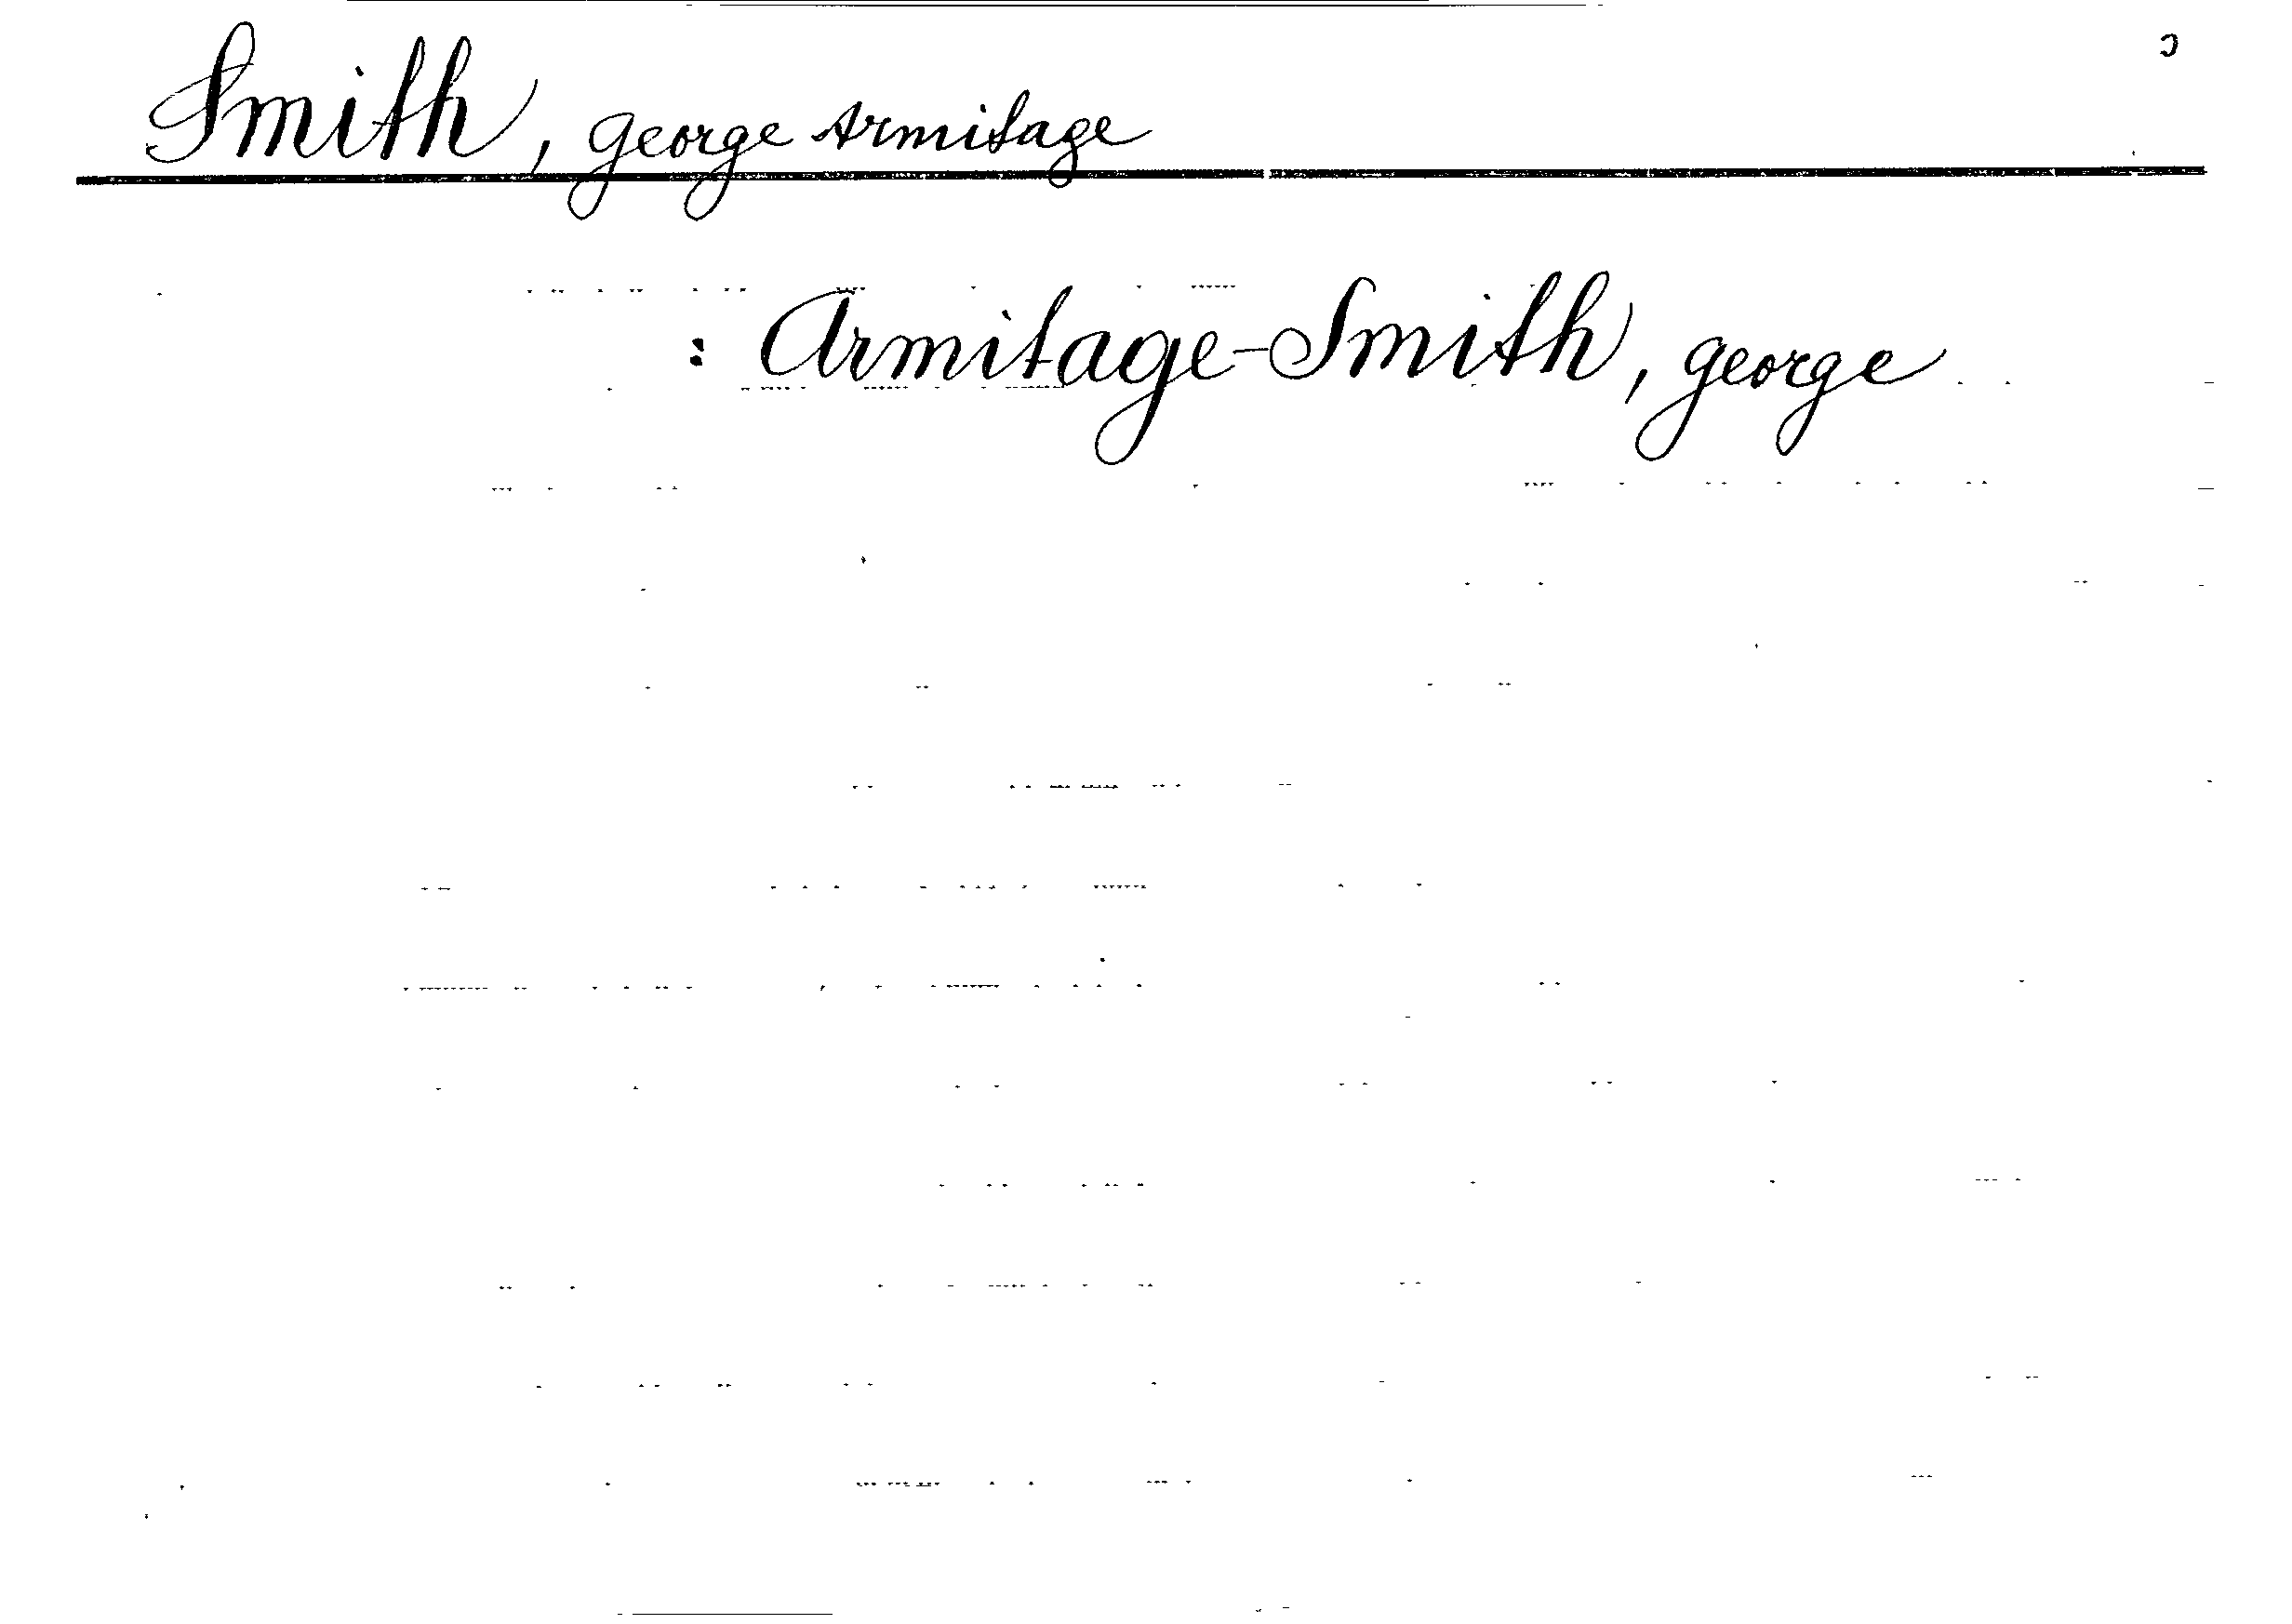 Smith, George Armitage
: Armitage-Smith, George